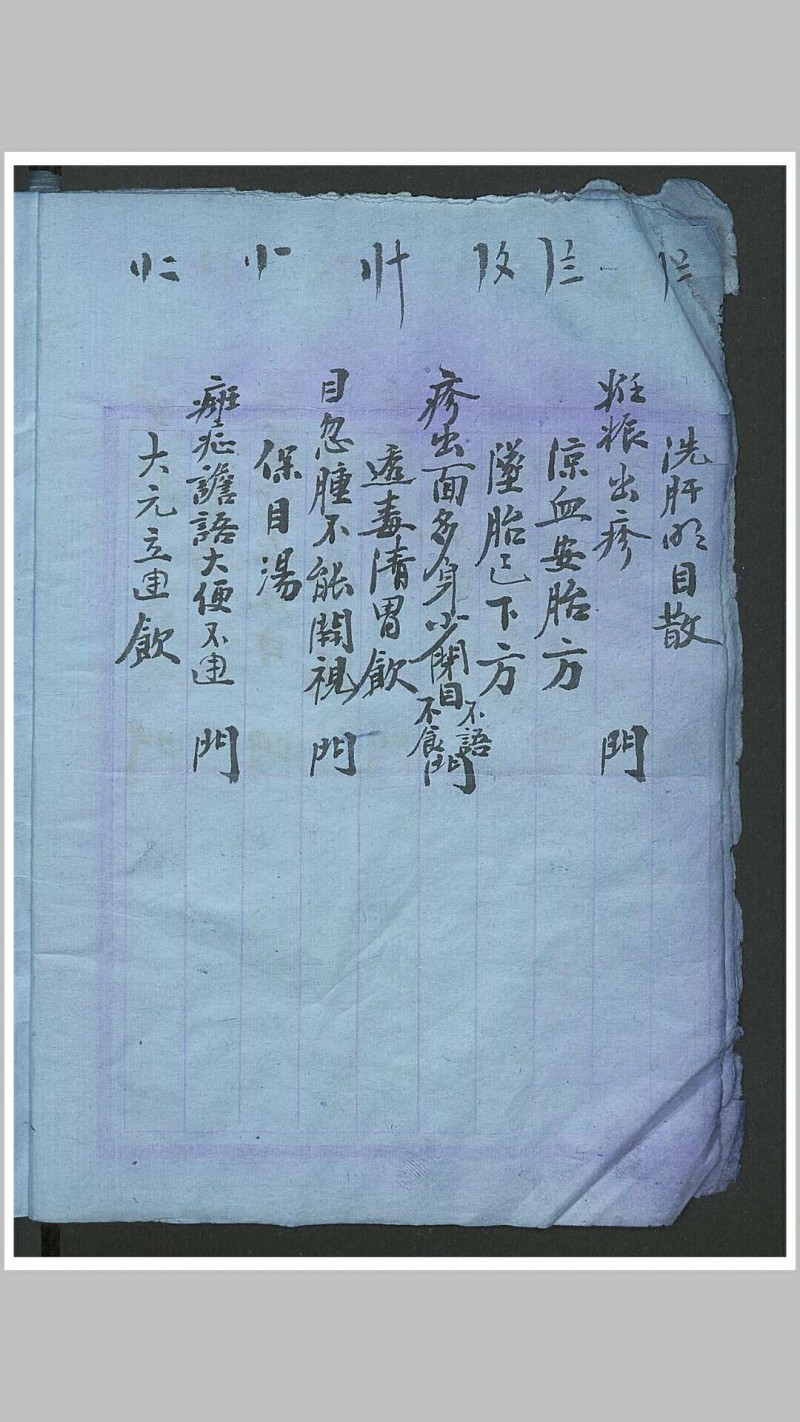 洗肝明目散
妊娠出疹 門
〡〨
涼血安胎方
〡〩
墜胎已下方
疹出面多身少閉目不語不食門
〢十
透毒清胃飲
目忽腫不能開視 門
〢一
保目湯
癍症譫語大便不通 門
〢二
大元立通飲